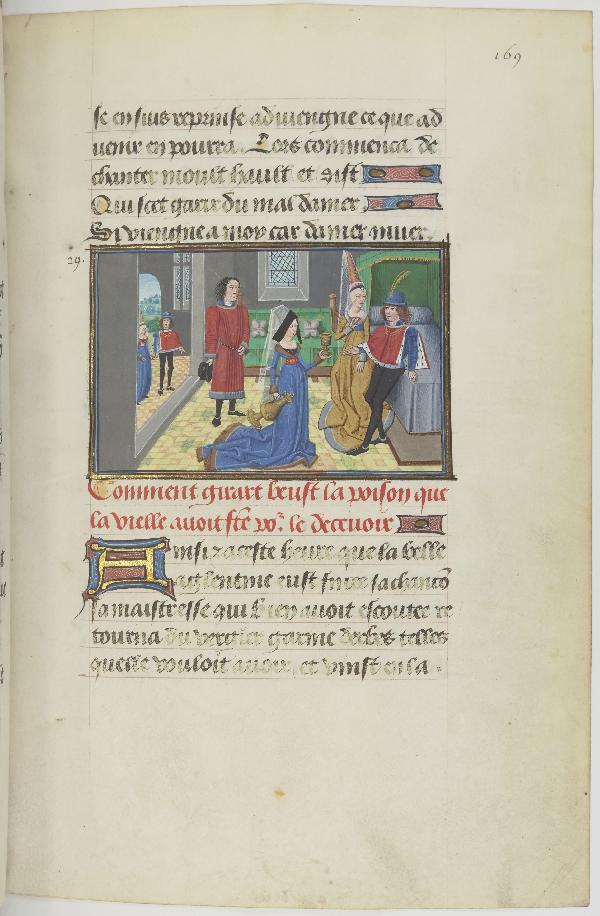 169
se en suis reprinse adviengne ce que ad
venir en pourra. Lors commenca de
chanter moult hault et dist
Qui scet garir du mal damer
Si viengne a moy car damer muer
29.
Comment girart beust la poison que
la vielle avoit fte por le decevoir
Ainsi a ceste heure que la belle
aiglentine eust finee sa chancon
sa maistresse qui bien avoit escoutee re
tourna du vergier garnie derbes telles
quelle vouloit avoir, et vinst en la